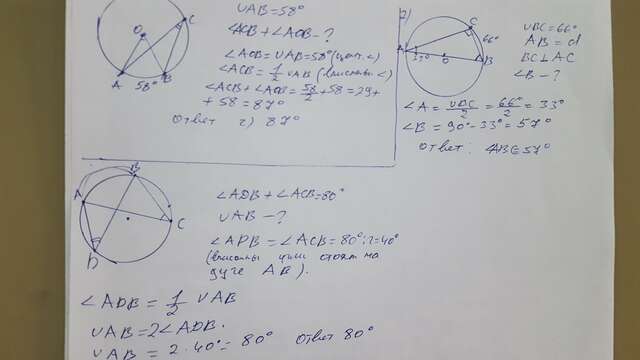 ∪AB=58°
∠ACB+∠AOB-?
∠AOB=∪AB=58° (центр.<)
∠ACB=1/2 ∪AB (вписанны <)
∠ACB+∠AOB=58/2+58=29+
+58=87°
ответ г) 87°
O
C
A
B
58°
2)
C
66°
A
33°
O
B
∪BC=66°
AB=d
BC⊥AC
∠B-?
∠A=∪BC/2=66°/2=33°
∠B=90°-33°=57°
ответ: 57°
B
A
C
D
∠ADB+∠ACB=80°
∪AB-?
∠ADB=∠ACB=80°:2=40°
(вписанны стоят на
дуге AB).
∠ADB=1/2 ∪AB
∪AB=2∠ADB.
∪AB=2·40°=80° Ответ 80°